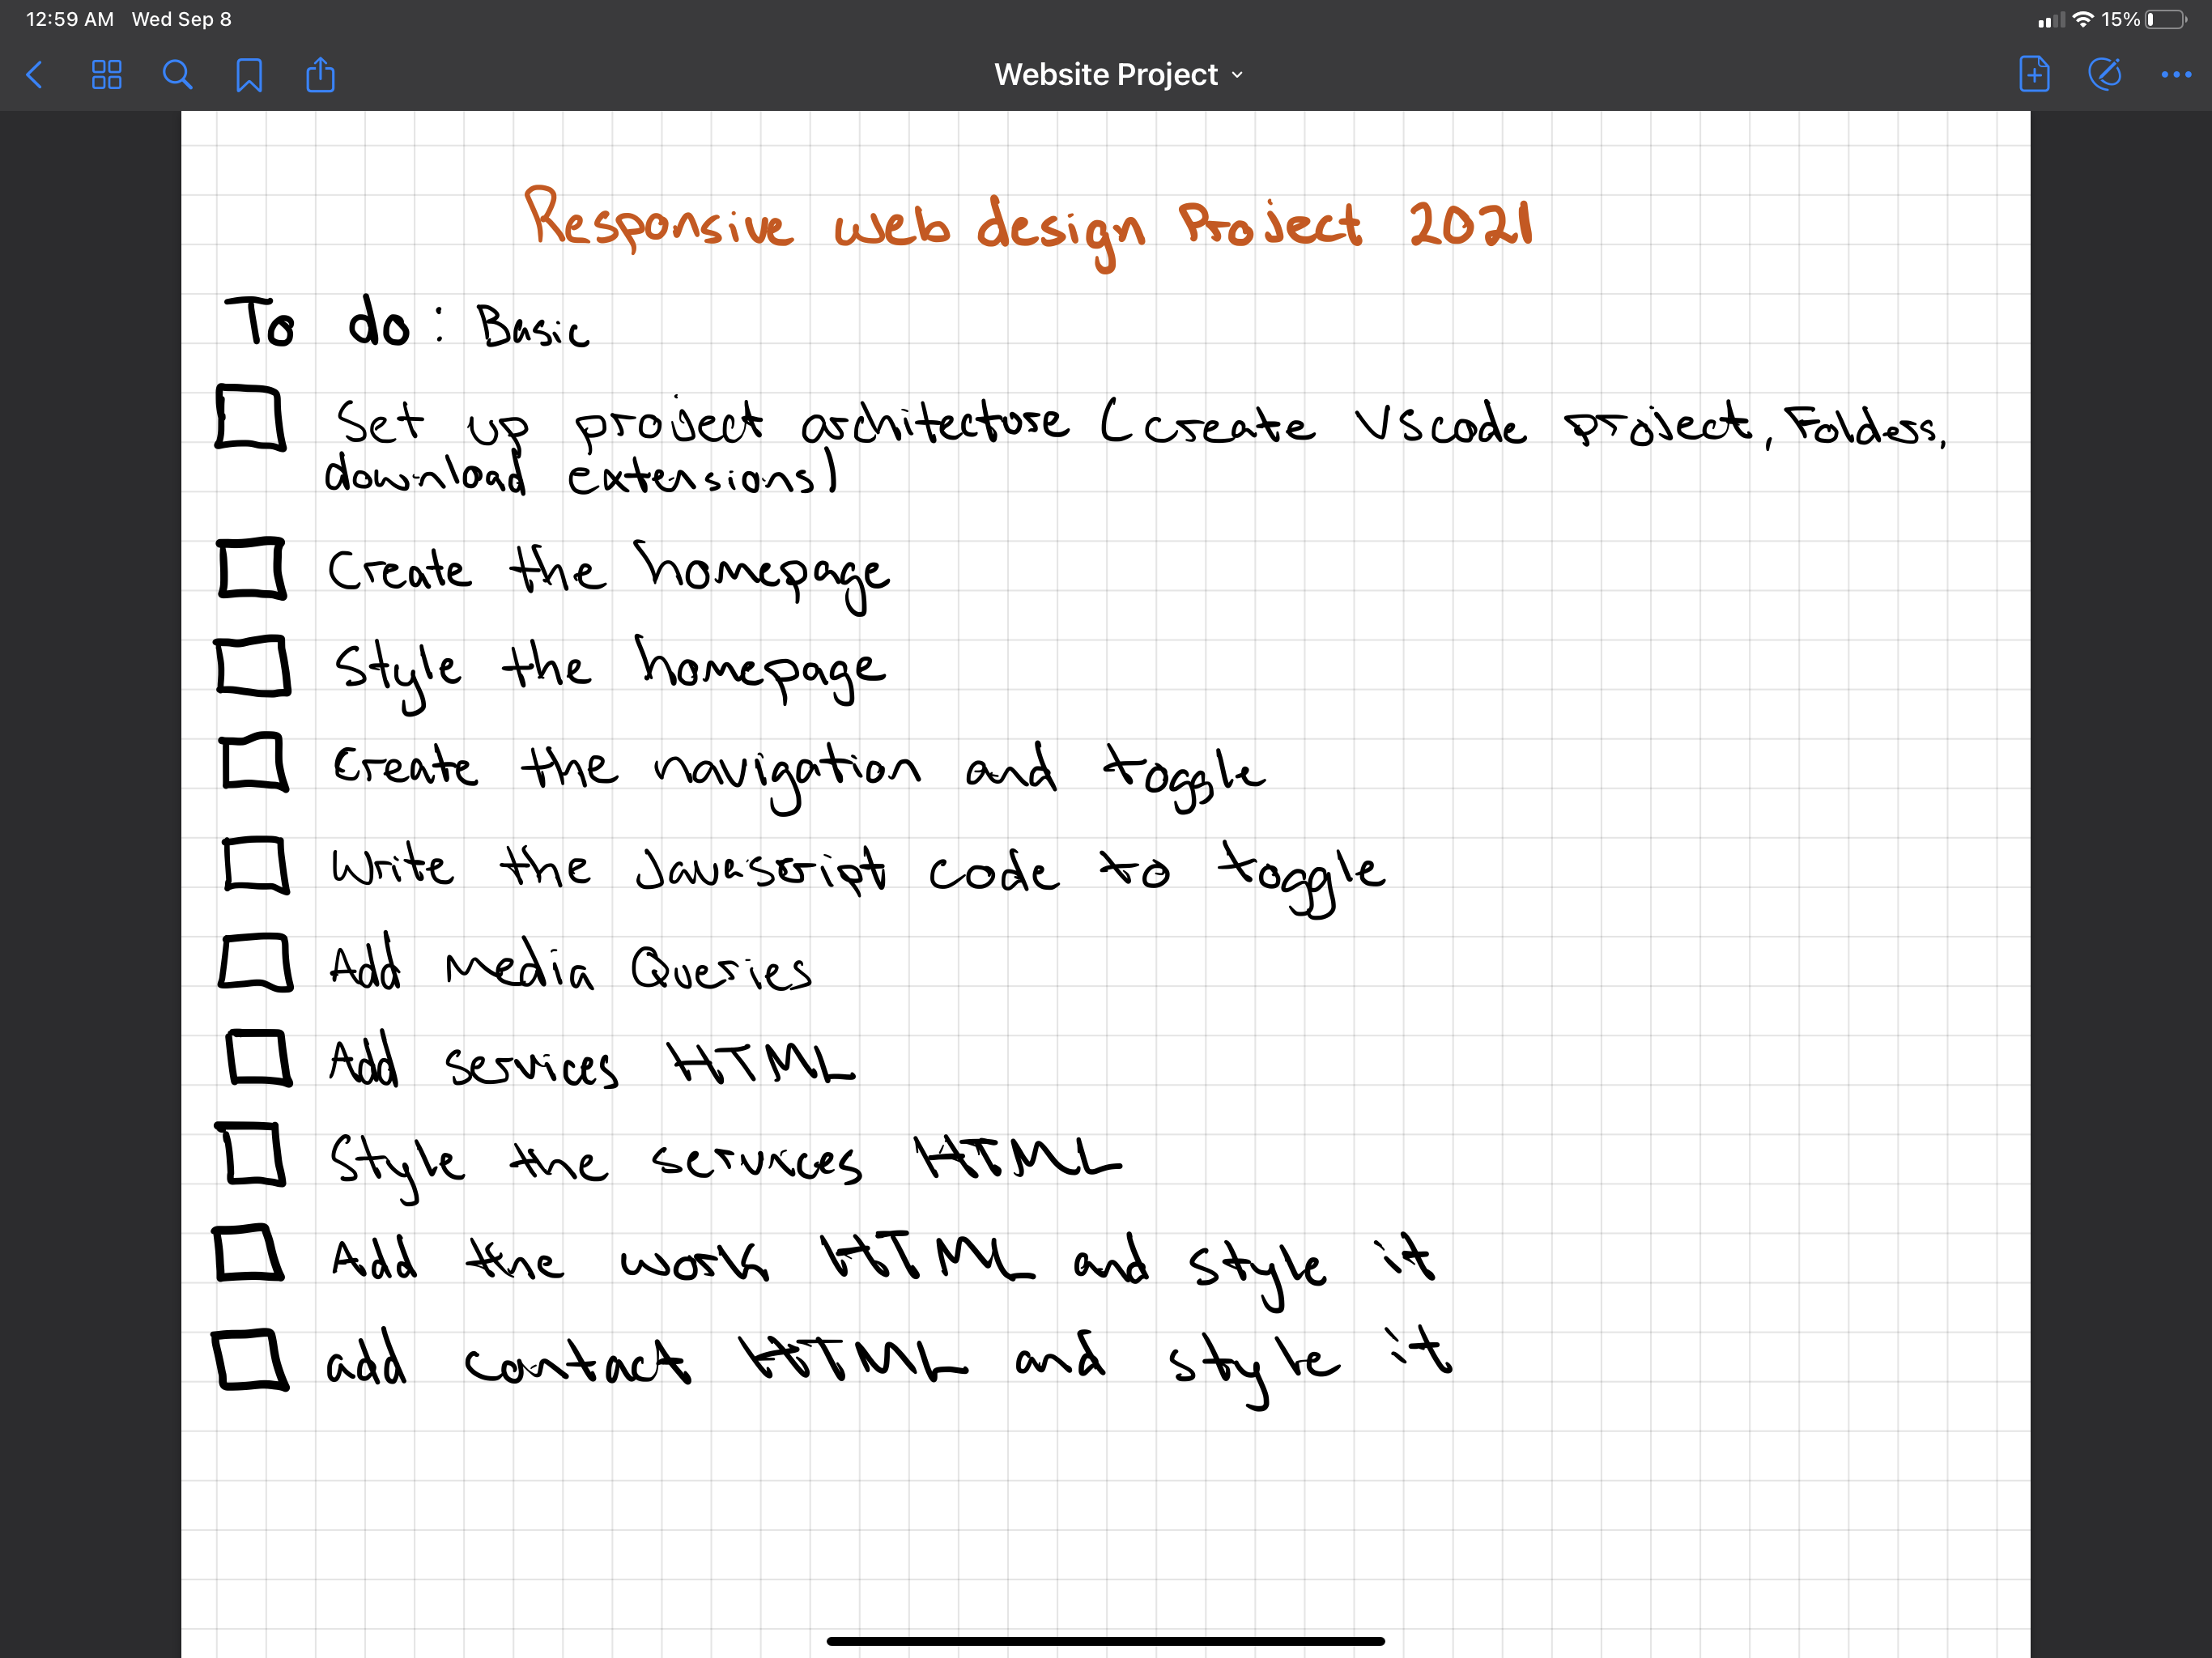 12:59 AM Wed Sep 8 15%
Website Project
Responsive web design Project 2021
To do: Basic
Set up project architecture (create VScode project, Folders,
download extensions)
Create the homepage
Style the homepage
Create the navigation and toggle
Write the Javascript code to toggle
Add Media Queries
Add services HTML
Style the services HTML
Add the work HTML and style it
add contact HTML and style it